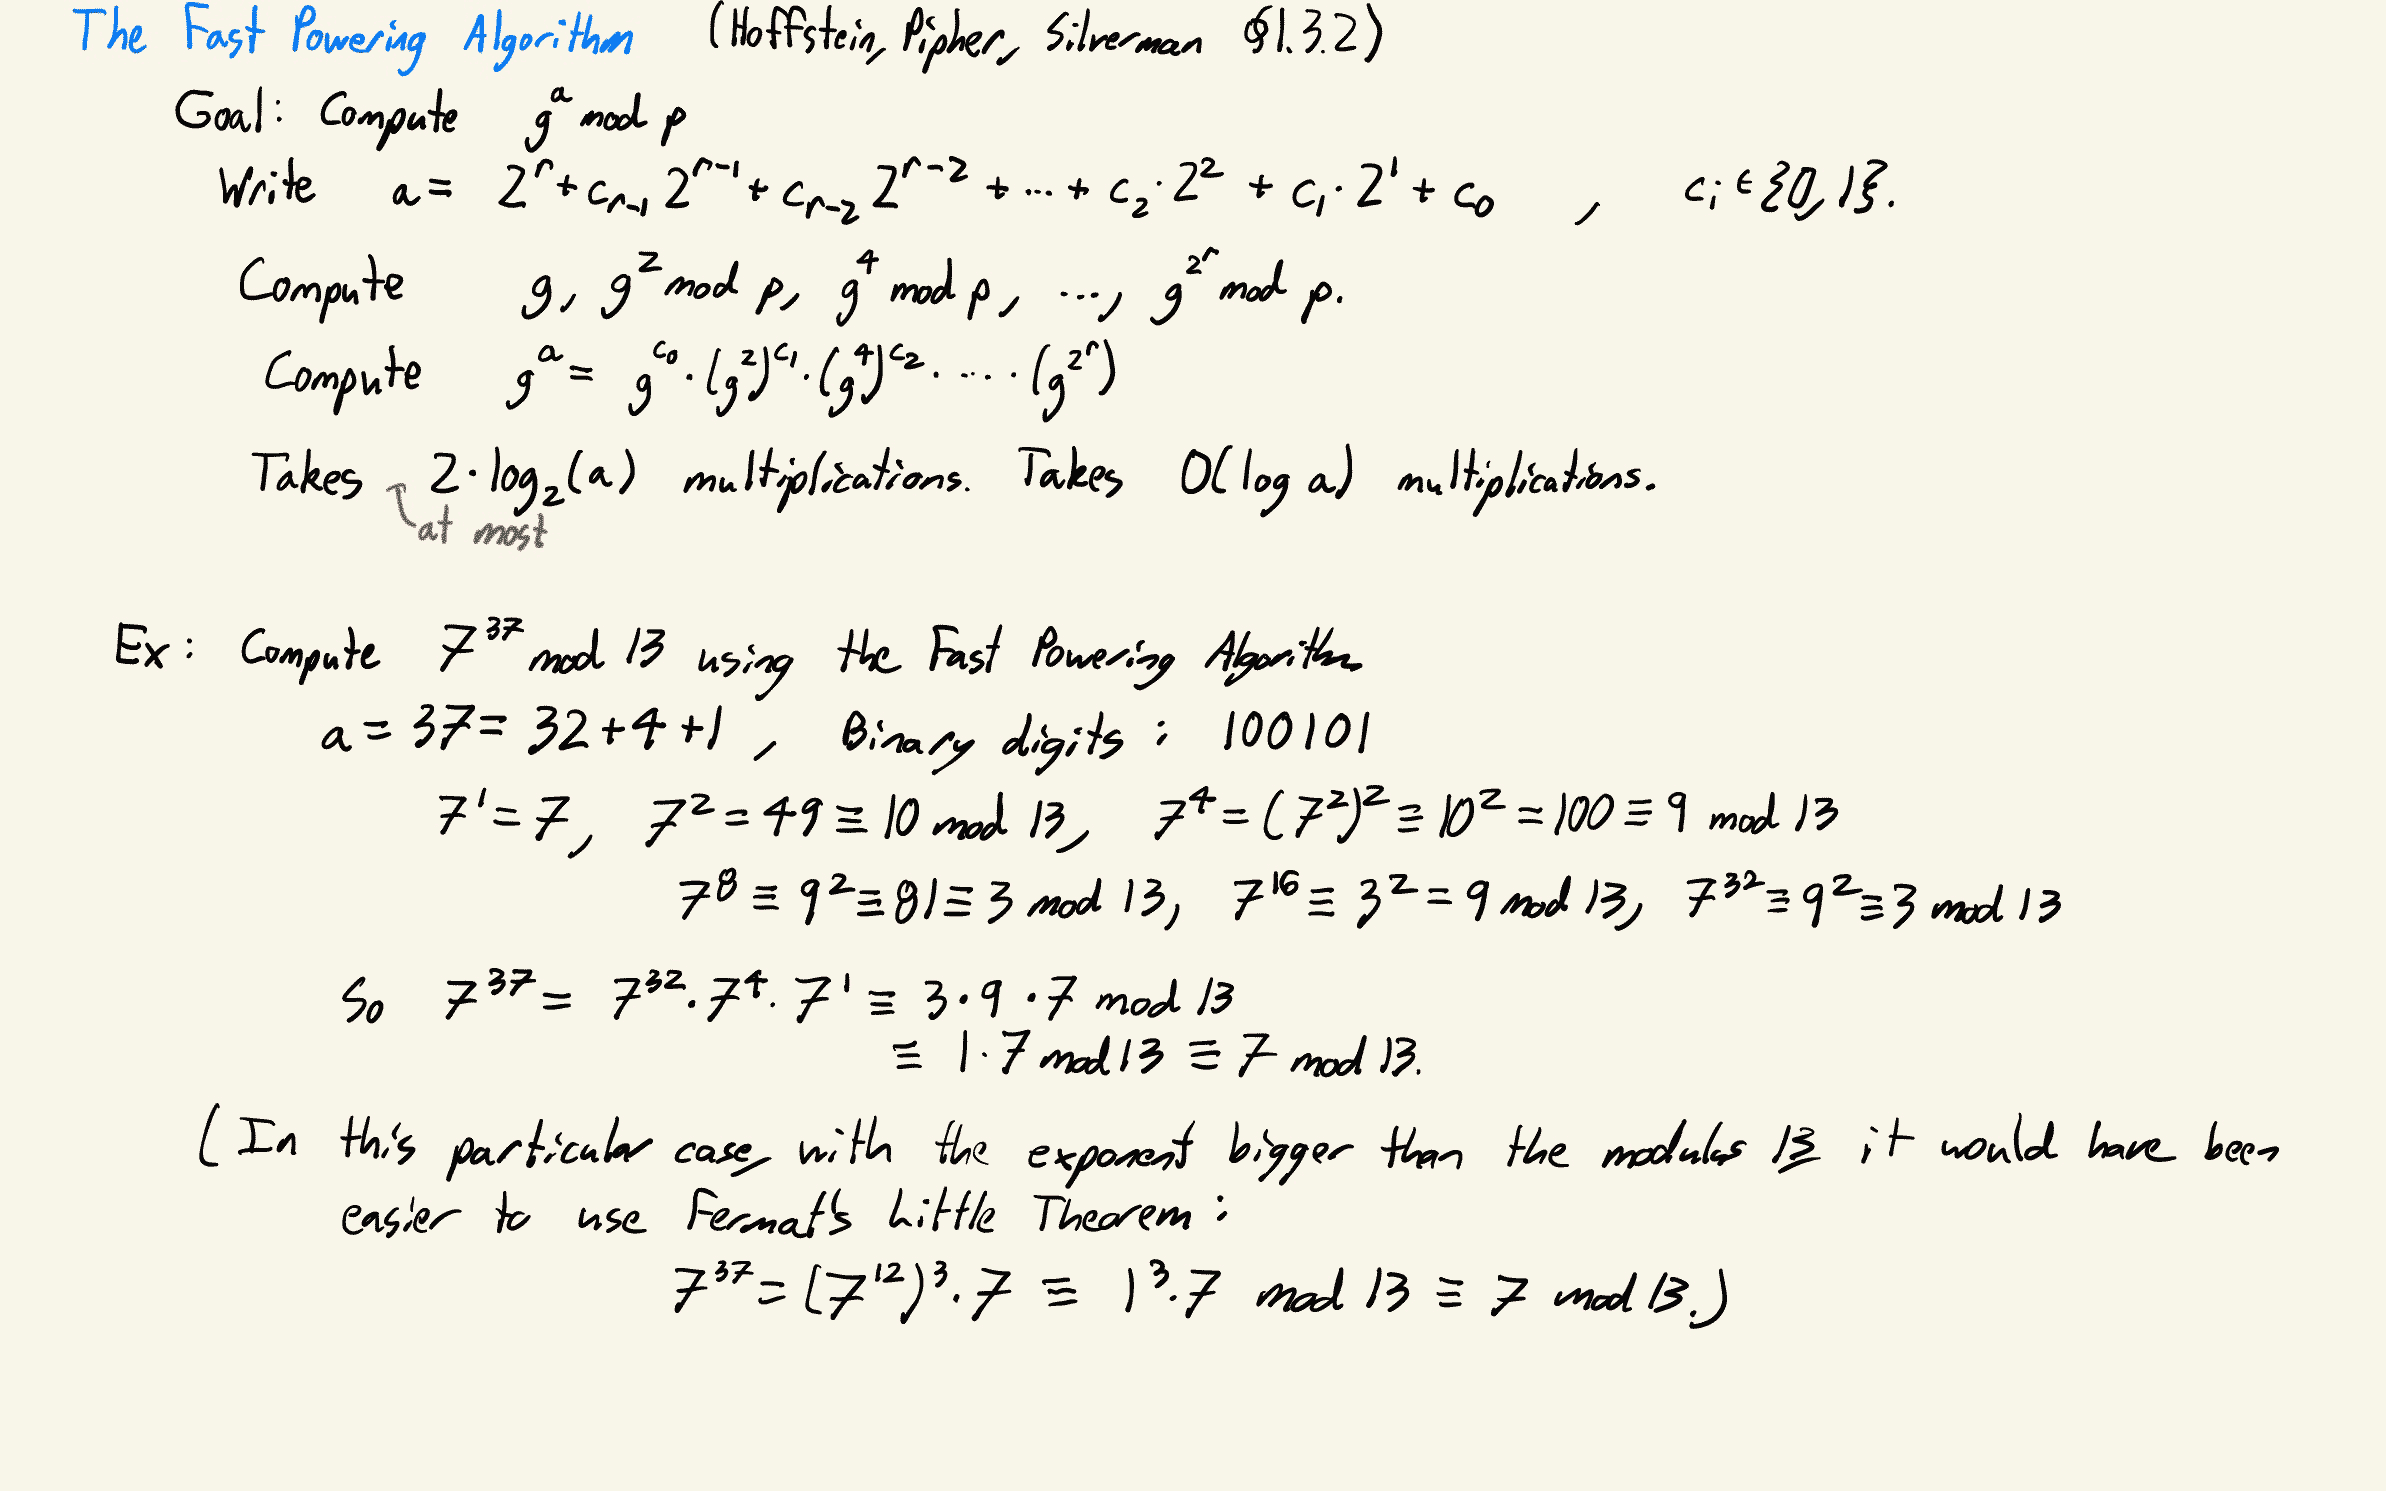 The Fast Powering Algorithm (Hoffstein, Pipher, Silverman §1.3.2)
Goal: Compute g^a mod p
Write a = 2^r + c_{r-1} 2^{r-1} + c_{r-2} 2^{r-2} + ... + c_2 · 2^2 + c_1 · 2^1 + c_0 , c_i ∈ {0, 1}.
Compute g, g^2 mod p, g^4 mod p, ..., g^{2^r} mod p.
Compute g^a = g^{c_0} · (g^2)^{c_1} · (g^4)^{c_2} · ... · (g^{2^r})
Takes 2 · log_2(a) multiplications. Takes O(log a) multiplications.
at most
Ex: Compute 7^{37} mod 13 using the Fast Powering Algorithm
a = 37 = 32 + 4 + 1 , Binary digits : 100101
7^1 = 7, 7^2 = 49 ≡ 10 mod 13, 7^4 = (7^2)^2 ≡ 10^2 = 100 ≡ 9 mod 13
7^8 ≡ 9^2 ≡ 81 ≡ 3 mod 13, 7^{16} ≡ 3^2 = 9 mod 13, 7^{32} ≡ 9^2 ≡ 3 mod 13
So 7^{37} = 7^{32} · 7^4 · 7^1 ≡ 3 · 9 · 7 mod 13
≡ 1 · 7 mod 13 ≡ 7 mod 13.
(In this particular case, with the exponent bigger than the modulus 13 it would have been
easier to use Fermat's Little Theorem :
7^{37} = (7^{12})^3 · 7 ≡ 1^3 · 7 mod 13 ≡ 7 mod 13.)